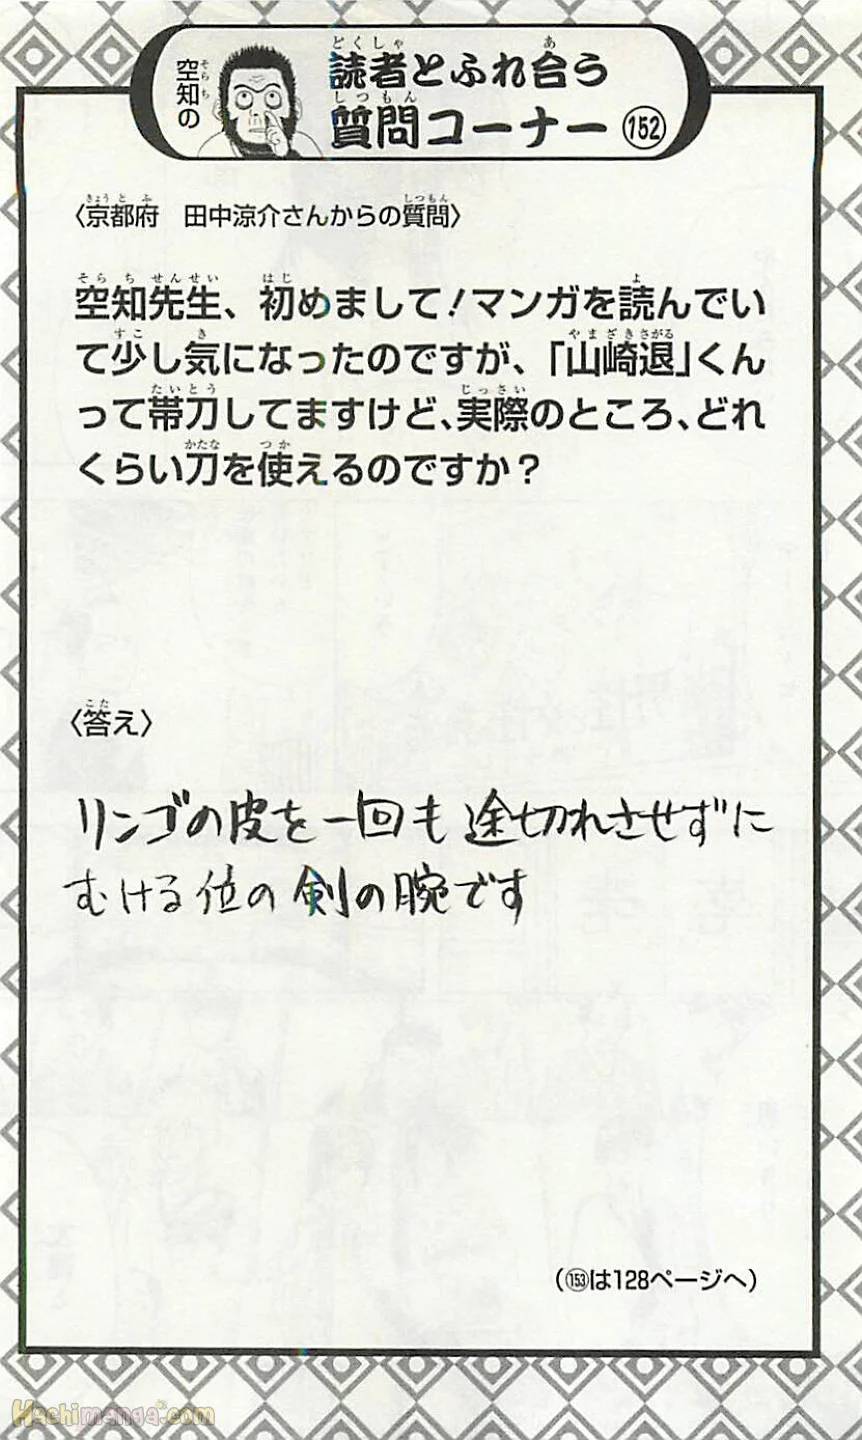 空知の
読者とふれ合う
質問コーナー 152
〈京都府　田中涼介さんからの質問〉
空知先生、初めまして!マンガを読んでい
て少し気になったのですが、「山崎退」くん
って帯刀してますけど、実際のところ、どれ
くらい刀を使えるのですか？
〈答え〉
リンゴの皮を一回も途切れさせずに
むける位の剣の腕です
(153は128ページへ)
Hachimanga.com